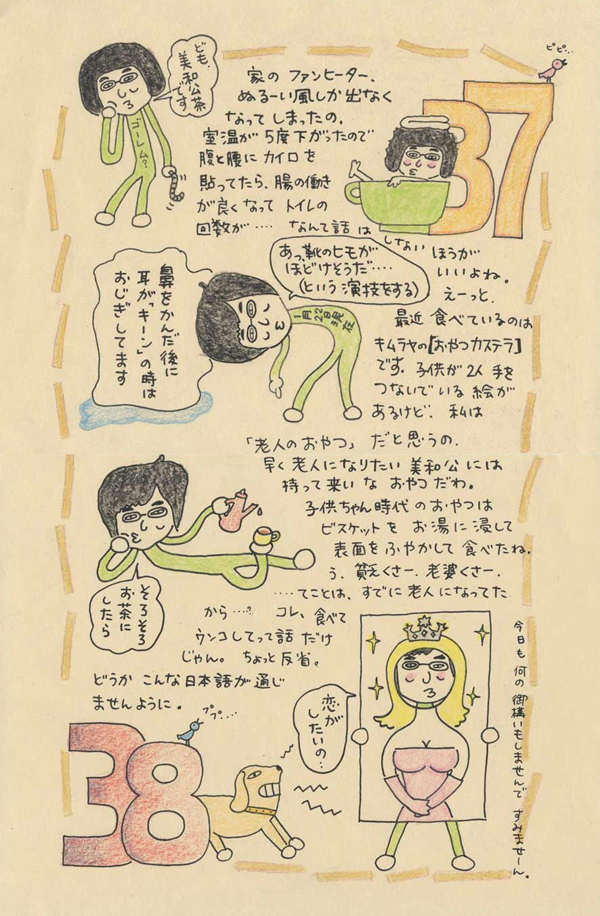 ピピ…
37
ども、
美和公茶
です
ゴーレム?
家の ファンヒーター、
ぬるーい風しか出なく
なってしまったの。
室温が 5度下がったので
腹と腰に カイロを
貼ってたら、腸の働き
が良くなって トイレの
回数が‥‥ なんて話は
しない ほうが
いいよね。
えーっと、
最近 食べているのは
キムラヤの[おやつカステラ]
です。子供が2人 手を
つないでいる 絵が
あるけど、私は
あっ、靴のヒモが
ほどけそうだ‥‥
(という 演技をする)
1月22日現在
鼻をかんだ後に
耳が「キーン」の時は
おじぎしてます
「老人のおやつ」 だと思うの。
早く 老人になりたい 美和公には
持って来いな おやつだわ。
子供ちゃん時代のおやつは
ビスケットを お湯に 浸して
表面を ふやかして 食べたね。
う、貧乏くさー、老婆くさー、
‥‥てことは、すでに 老人になってた
から‥‥? コレ、食べて
ウンコしてって話だけ
じゃん。 ちょっと反省。
どうか こんな日本語が 通じ
ませんように。
そろそろ
お茶に
したら
恋が
したいの…
ププ…
38
今日も何の御構いもしませんで すみませーん。